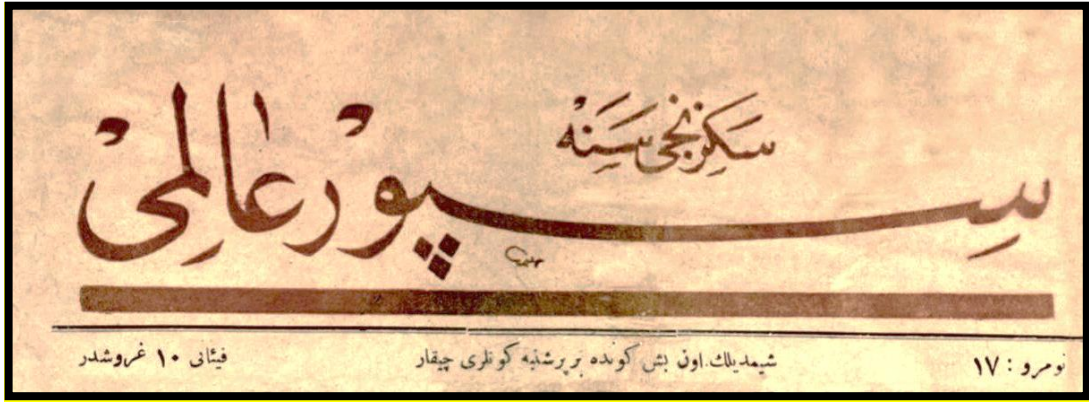 سكزنجی سنه
سپور عالمی
نومرو : ١٧
شیمدیلك اون بش كونده بر پرشنبه كونلری چیقار
فیئاتی ١٠ غروشدر